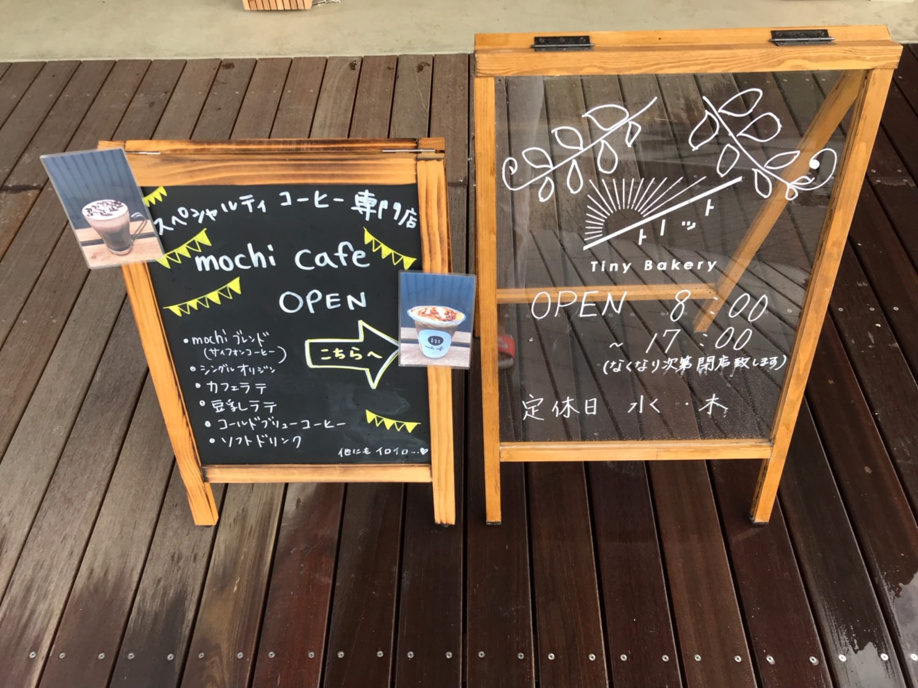 スペシャルティ コーヒー 専門店
mochi cafe
OPEN
・mochiブレンド
(サイフォンコーヒー)
・シングルオリジン
・カフェラテ
・豆乳ラテ
・コールドブリューコーヒー
・ソフトドリンク
こちらへ
他にも イロイロ...♥
トリット
Tiny Bakery
OPEN 8:00
~ 17:00
(なくなり次第閉店致します)
定休日 水・木